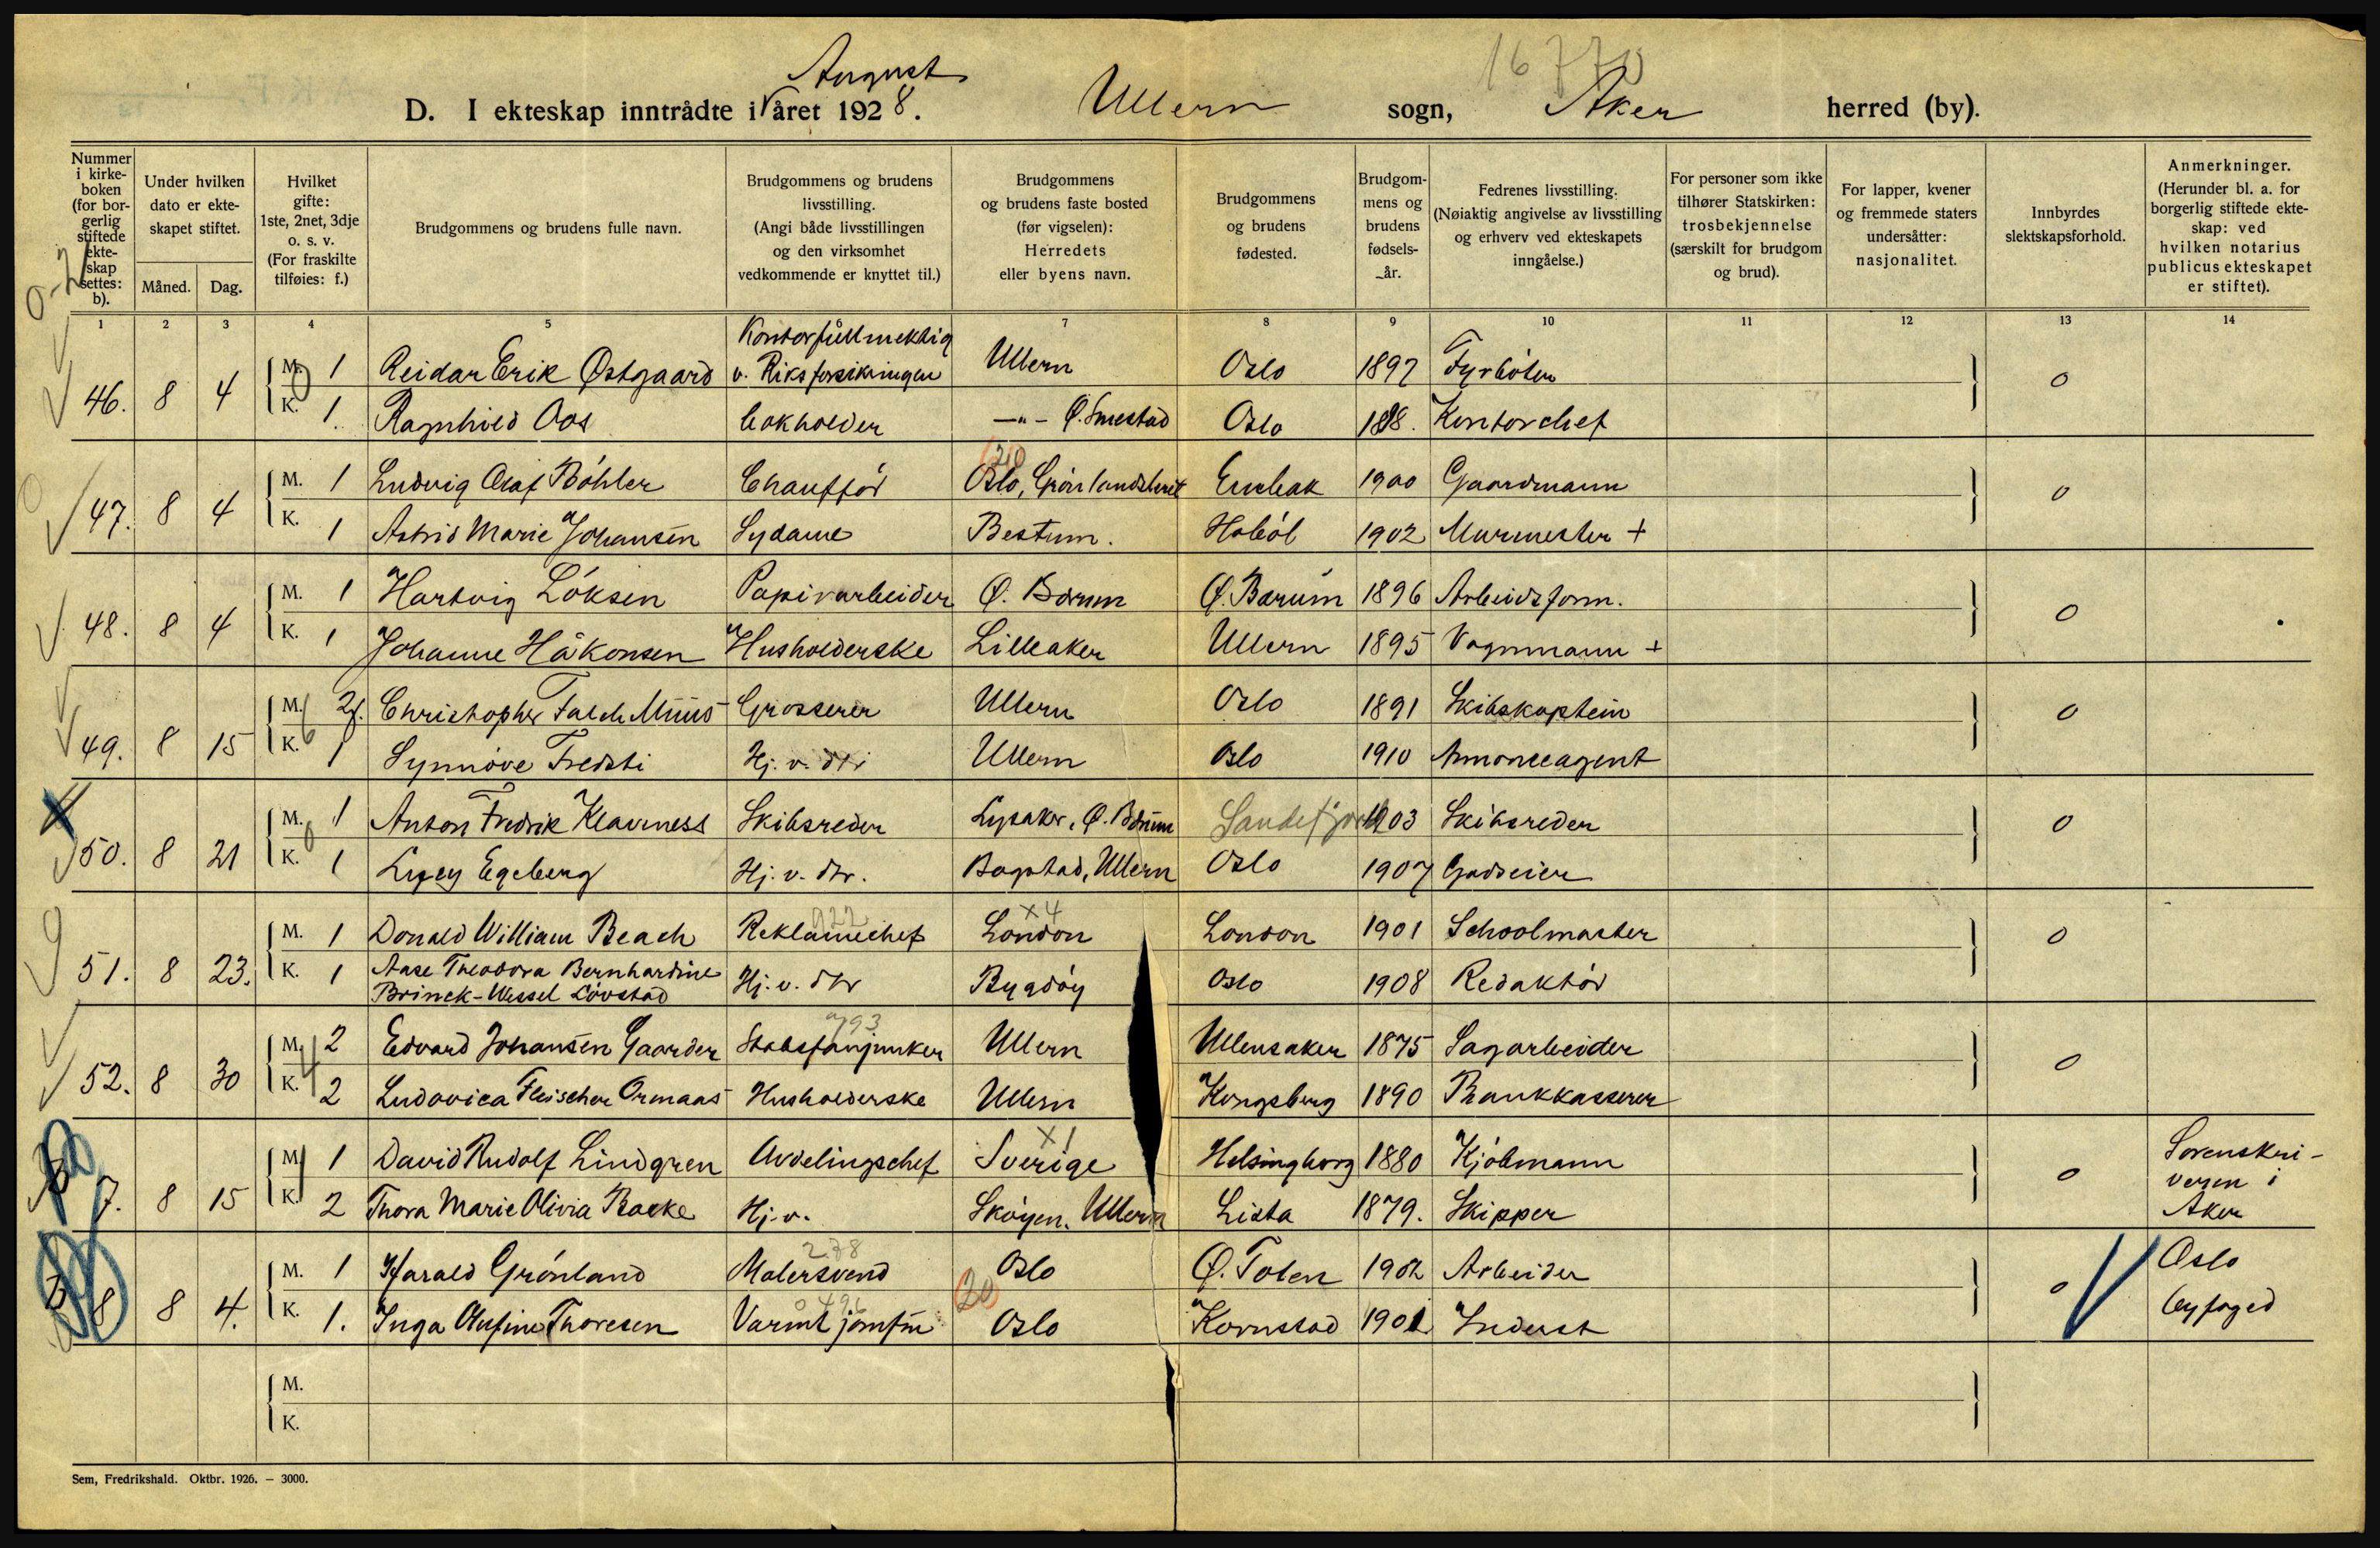 August
16770
D. I ekteskap inntrådte i året 1928. Ullern sogn, Aker herred (by).
Nummer i kirke-boken (for bor-gerlig stiftede ekte-skap settes: b).
Under hvilken dato er ekte-skapet stiftet.
Måned. Dag.
Hvilket gifte: 1ste, 2net, 3dje o. s. v. (For fraskilte tilføies: f.)
Brudgommens og brudens fulle navn.
Brudgommens og brudens livsstilling. (Angi både livsstillingen og den virksomhet vedkommende er knyttet til.)
Brudgommens og brudens faste bosted (før vigselen): Herredets eller byens navn.
Brudgommens og brudens fødested.
Brudgom-mens og brudens fødsels-år.
Fedrenes livsstilling. (Nøiaktig angivelse av livsstilling og erhverv ved ekteskapets inngåelse.)
For personer som ikke tilhører Statskirken: trosbekjennelse (særskilt for brudgom og brud).
For lapper, kvener og fremmede staters undersåtter: nasjonalitet.
Innbyrdes slektskapsforhold.
Anmerkninger. (Herunder bl. a. for borgerlig stiftede ekte-skap: ved hvilken notarius publicus ekteskapet er stiftet).
1 2 3 4 5 6 7 8 9 10 11 12 13 14
Kontorfullmektig
46. 8 4 M. 1 Reidar Erik Østgaard v. Riksforsikringen Ullern Oslo 1897 Fyrböter 0
K. 1. Ragnhild Aas bokholder —"— Ø. Smestad Oslo Kontorchef
20
47. 8 4 M. 1 Ludvig Olaf Böhler Chaufför Oslo, Grönlandsleret Enebak 1900 Gaardmann 0
K. 1 Astrid Marie Johansen Sydame Bestum. Haböl 1902 Murmester +
48. 8 4 M. 1 Hartvig Löksen Papirarbeider Ø. Bærum Ø. Bærum 1896 Arbeidsform. 0
K. 1 Johanne Håkonsen Husholderske Lilleaker Ullern 1895 Vognmann +
49. 8 15 M. 2f. Christopher Falch Muus Grosserer Ullern Oslo 1891 Skibskaptein 0
K. 1 Synnöve Fredsti Hj. v. Ullern Oslo 1910 Annonceagent
50. 8 21 M. 1 Anton Fredrik Klaveness Skibsreder Lysaker, Ø. Bærum Sandefjord 1903 Skibsreder 0
K. 1 Lucy Egeberg Hj. v. dtr. Bogstad, Ullern Oslo 1907 Godseier
922 x4
51. 8 23. M. 1 Donald William Beach Reklamechef London London 1901 Schoolmaster 0
K. 1 Aase Theodora Bernhardine Brinck-Wessel Lövstad Hj. v. dtr Bygdöy Oslo 1908 Redaktör
52. 8 30 M. 2 Edvard Johansen Gaarder Stabsfanjunker Ullern Ullensaker 1875 Sagarbeider 0
K. 2 Ludovica Fleischer Ormaas Husholderske Ullern Kongsberg 1890 Bankkasserer
x1
b 7. 8 15 M. 1 David Rudolf Lindgren Avdelingschef Sverige Helsingborg 1880 Kjöbmann 0 Sorenskri-
veren i
K. 2 Thora Marie Olivia Backe Hj. v. Sköyen, Ullern Lista 1879. Skipper Aker
278
b 8 8 4. M. 1 Harald Grönland Malersvend Oslo Ø. Toten 1902 Arbeider 0 Oslo
20 496
K. 1. Inga Olufine Thoresen Oslo Kornstad 1901 Inderst byfoged
M.
K.
Sem, Fredrikshald. Oktbr. 1926. — 3000.